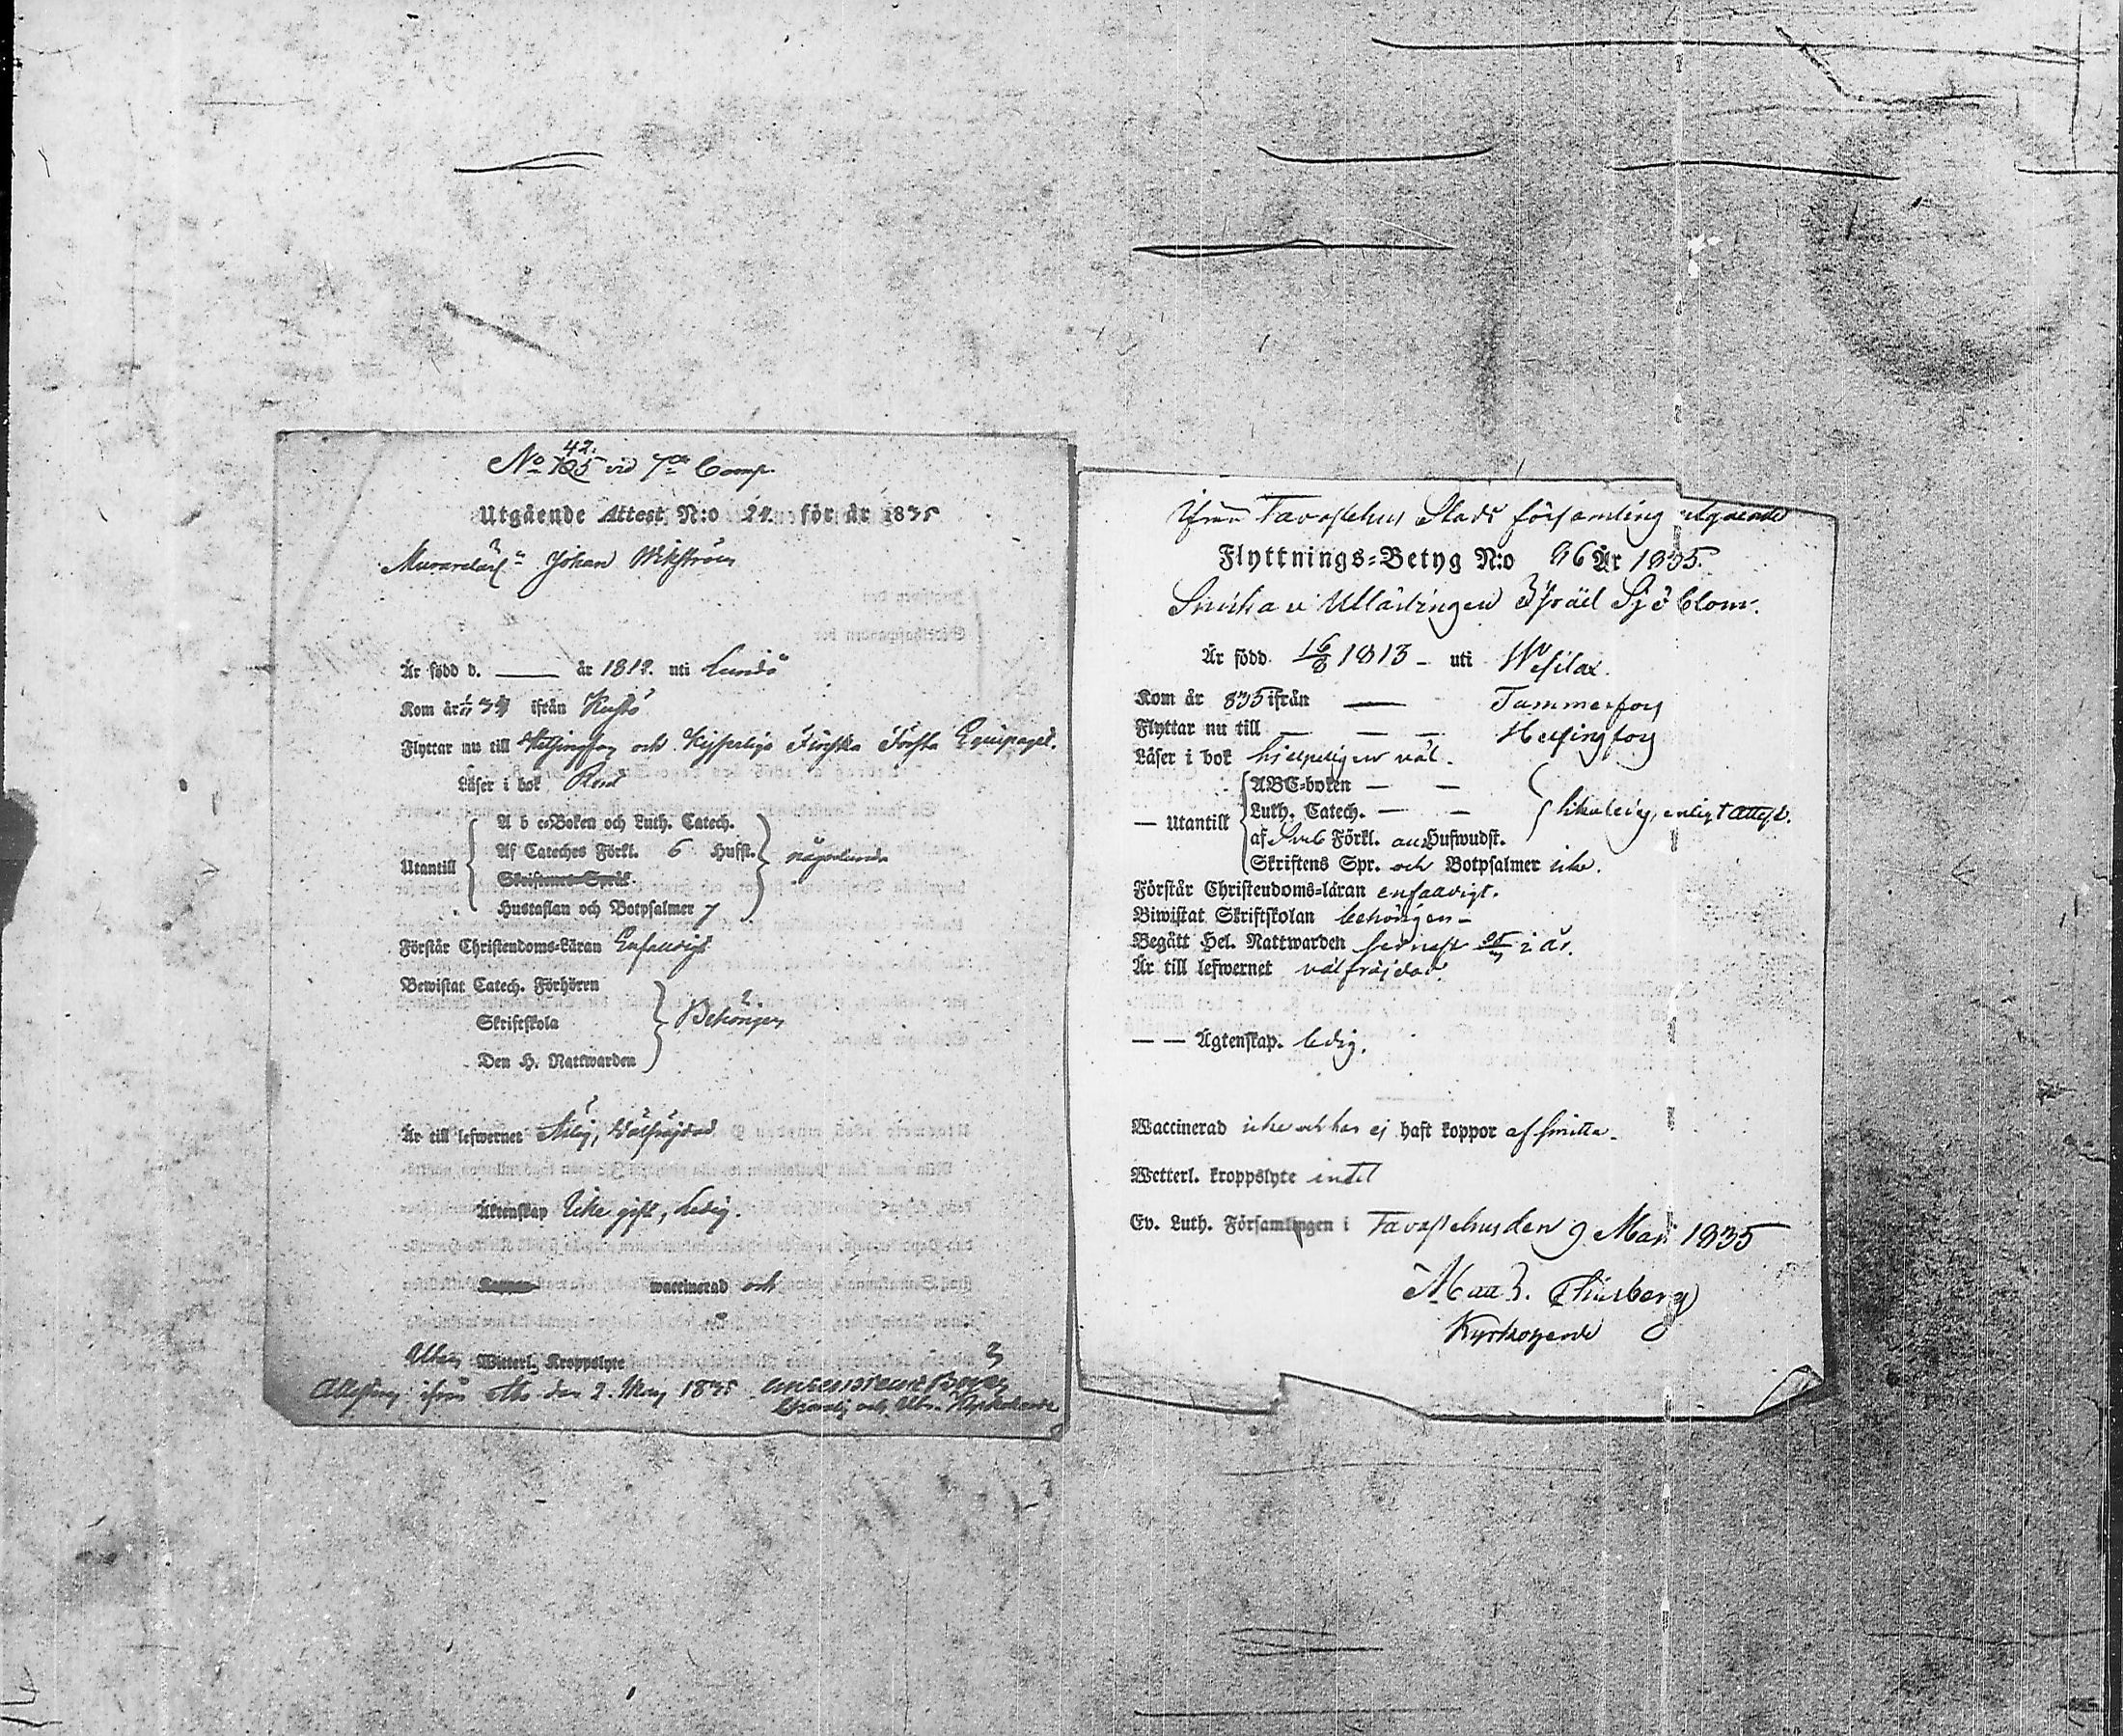 42.
No 125 vid 7de Comp.
Utgående Attest N:o 24. för år 1835
Johan Wikström
Är född d. — år 1812. uti Lundo
Kom år 34 ifrån Kustö
Flyttar nu till Helsingfors och Kejserliga Finska Första Equipaget.
Läser i bok Rent
Utantill
A b c=Boken och Luth. Catech.
Af Cateches Förkl. 6 Hufst.
Skriftenes Språk
någorlunda
Hustaflan och Botpsalmer 7
Förstår Christendoms=Läran Enfaldigt
Bewistat Catech. Förhören
Skriftskola
Behörigen
Den H. Nattwarden
Är till lefwernet Wälfrejdad
Äktenskap Icke gift, Ledig.
Koppor waccinerad och
Utan Witterl. Kroppslyte
den 2. May 1835
Ifrån Tavastehus Stads församling utgående
Flyttnings=Betyg N:o 96 År 1835.
Israël Sjöblom.
Är född 16/8 1813 — uti Wesilax.
Kom år 835 ifrån — Tammerfors
Flyttar nu till — — — Helsingfors
Läser i bok hjelpeligen väl.
— Utantill
ABC=boken — —
Luth. Catech. — —
enligt Attest.
af Förkl. Hufwudst.
Skriftens Spr. och Botpsalmer icke.
Förstår Christendoms=läran enfaldigt.
Biwistat Skriftskolan behörigen —
Begått Hel. Nattwarden senast i år.
Är till lefwernet välfräjdad
— — Ägtenskap. ledig.
Waccinerad icke och har ej haft koppor af smitta.
Wetterl. kroppslyte intet
Ev. Luth. Församlingen i Tavastehus den 9 Maii 1835